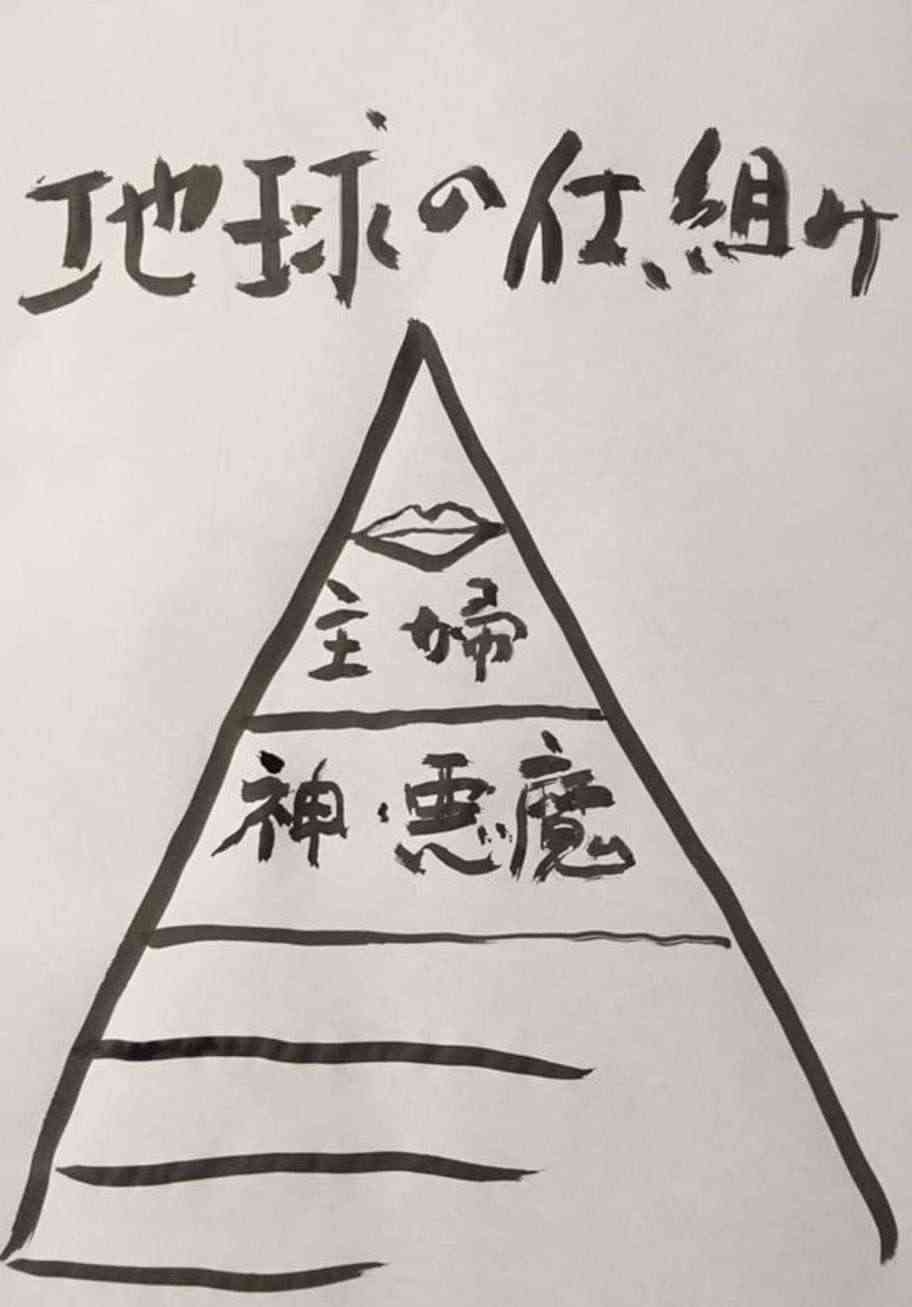 地球の仕組み
主婦
神・悪魔